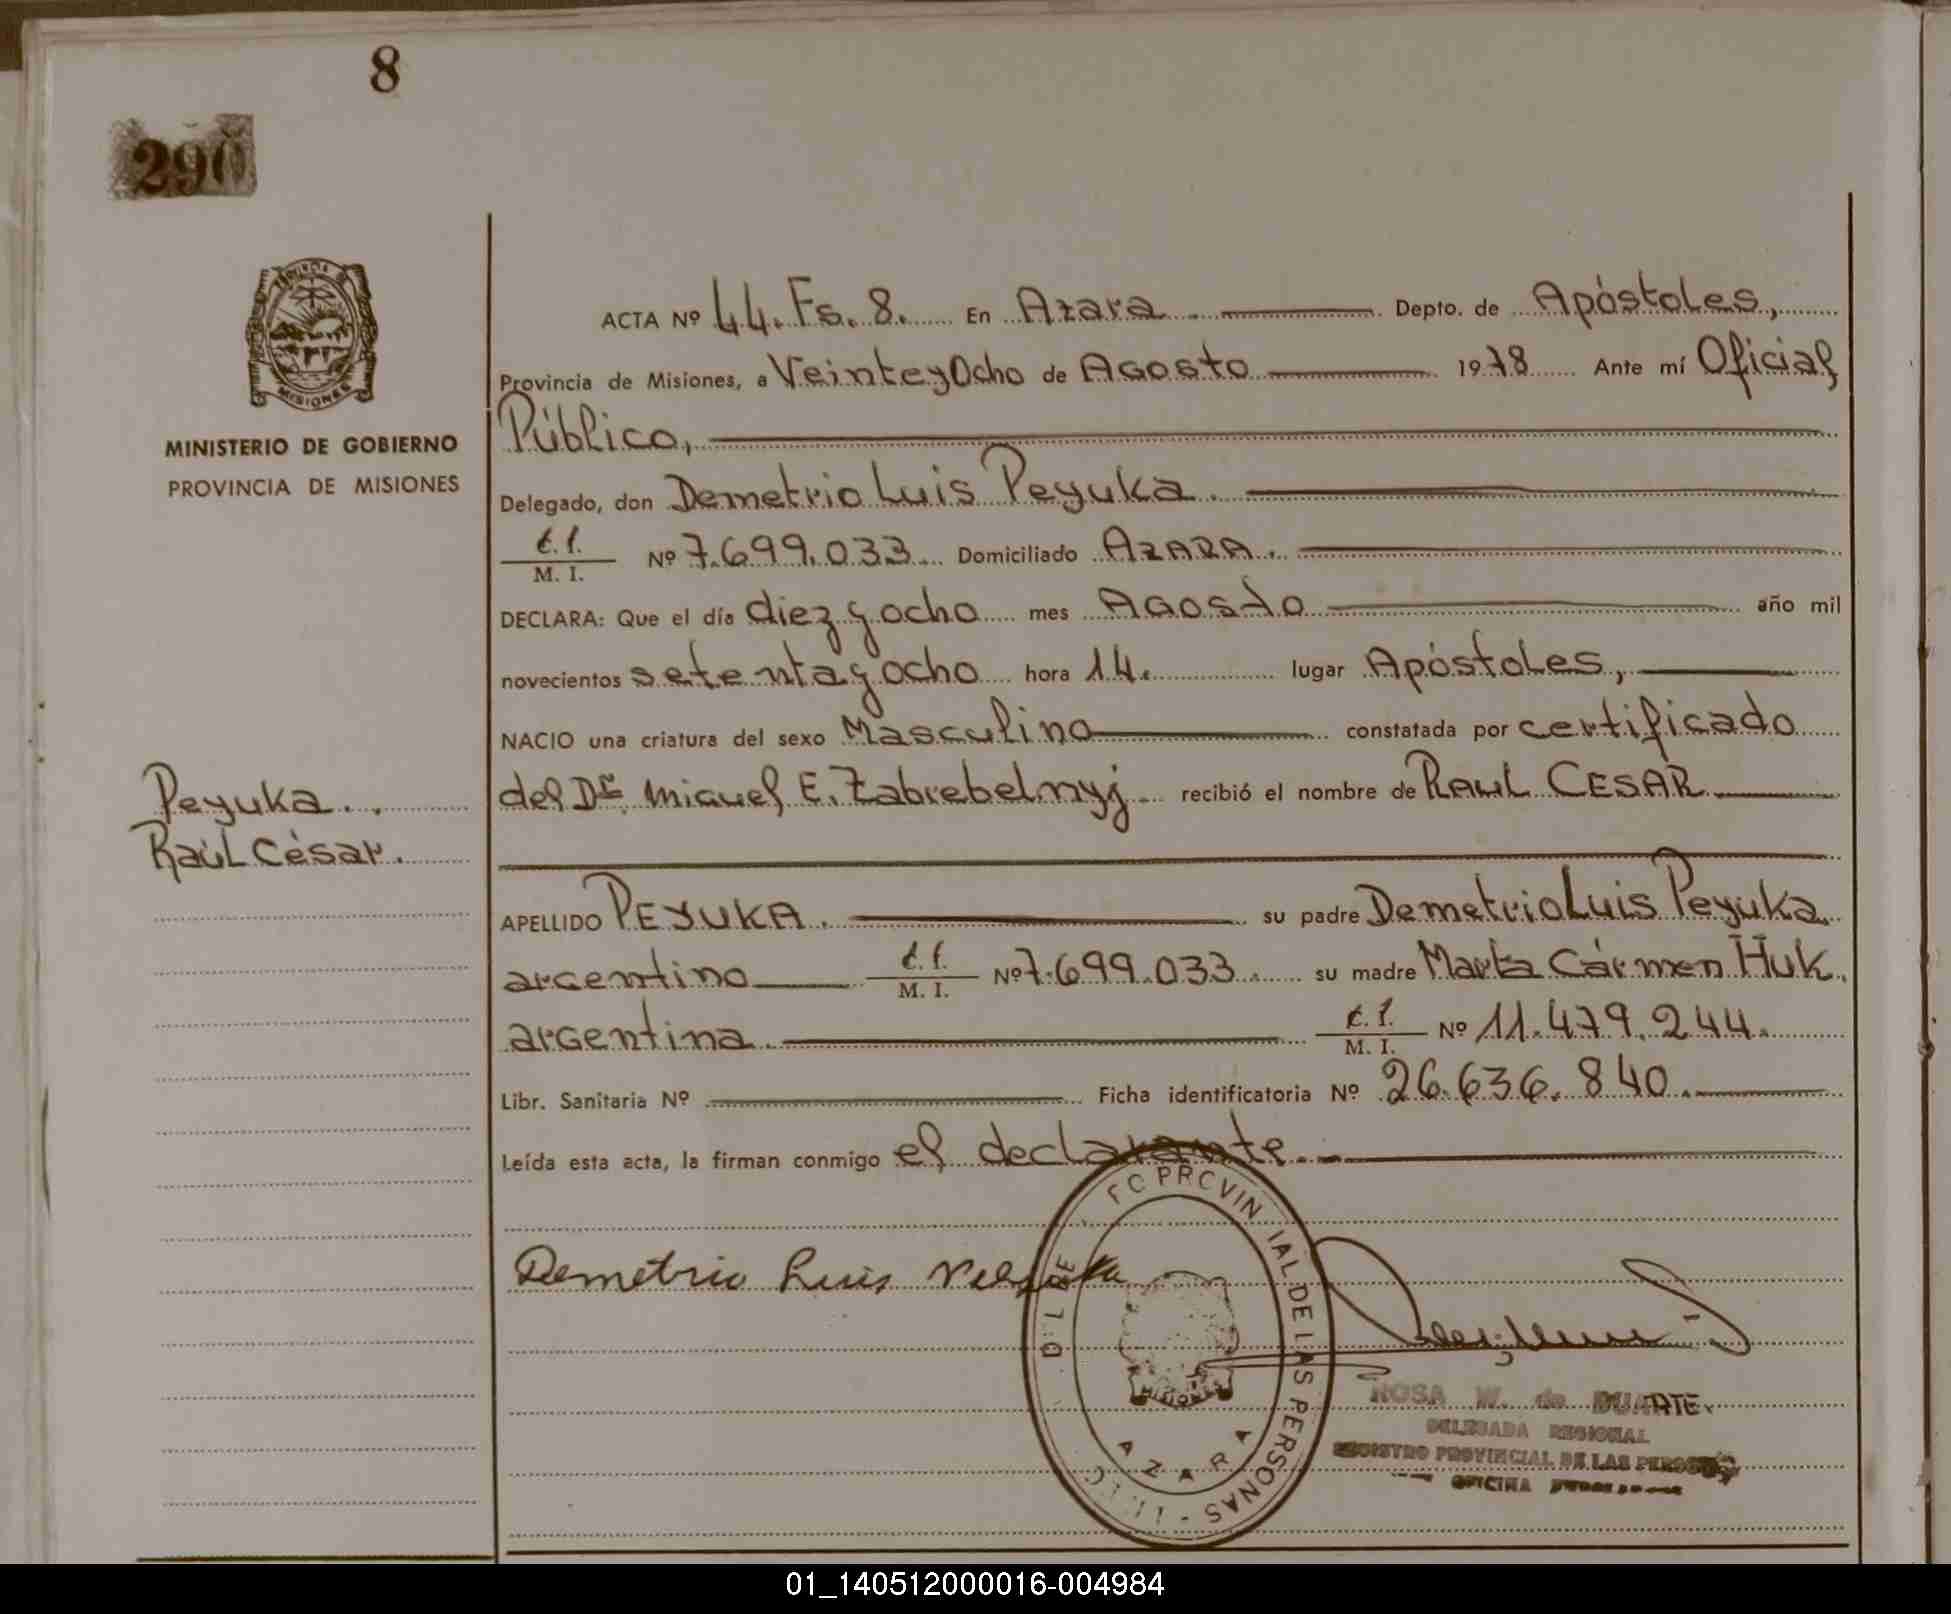 8
290
PROVINCIA D
MISIONES
MINISTERIO DE GOBIERNO
PROVINCIA DE MISIONES
Peyuka..
Raúl César.
ACTA Nº 44. Fs. 8. En Azara. Depto. de Apóstoles,
Provincia de Misiones, a Veinte y Ocho de Agosto 1978 Ante mí Oficial
Público,
Delegado, don Demetrio Luis Peyuka.
C.I.
M. I. Nº 7.699.033 Domiciliado AZARA.
DECLARA: Que el día diez y ocho mes Agosto año mil
novecientos setenta y ocho hora 14. lugar Apóstoles,
NACIO una criatura del sexo Masculino constatada por certificado
del Dr. Miguel E. Zabrebelnyj recibió el nombre de RAUL CESAR
APELLIDO PEYUKA. su padre Demetrio Luis Peyuka
argentino C.I.
M. I. Nº 7.699.033. su madre Marta Cármen Huk.
argentina. C.I.
M. I. Nº 11.479.244.
Libr. Sanitaria Nº Ficha identificatoria Nº 26.636.840.
Leída esta acta, la firman conmigo el declarante.
Demetrio Luis Peyuka
PROVINCIAL DE LAS PERSONAS -
MISIONES
AZARA
ROSA W. de DUARTE
DELEGADA REGIONAL
REGISTRO PROVINCIAL DE LAS PERSONAS
OFICINA
01_140512000016-004984